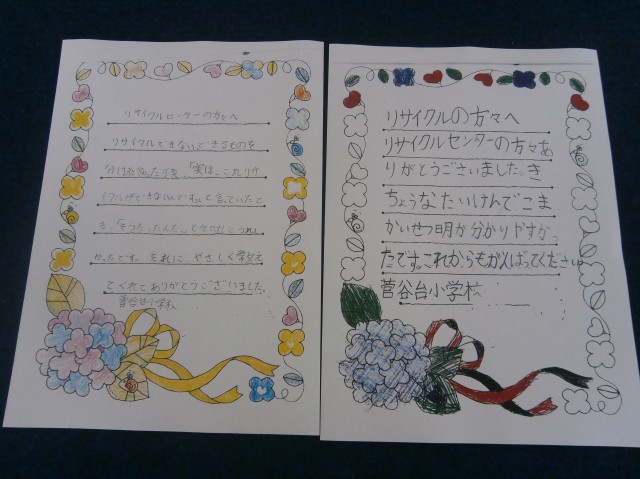 リサイクルセンターの方々へ
リサイクルできないできるものを
分けれ
「実は、これリサ
イクルができないんです。」と言っていたと
き、「そうだったんだ。」と
うれし
かったです。それに、やさしく教え
てくれてありがとうございました。
菅谷台小学校
リサイクルの方々へ
リサイクルセンターの方々あ
りがとうございました。き
ちょうなたいけんでこま
かいせつ明が分かりやすかっ
たです。これからもがんばってください。
菅谷台小学校